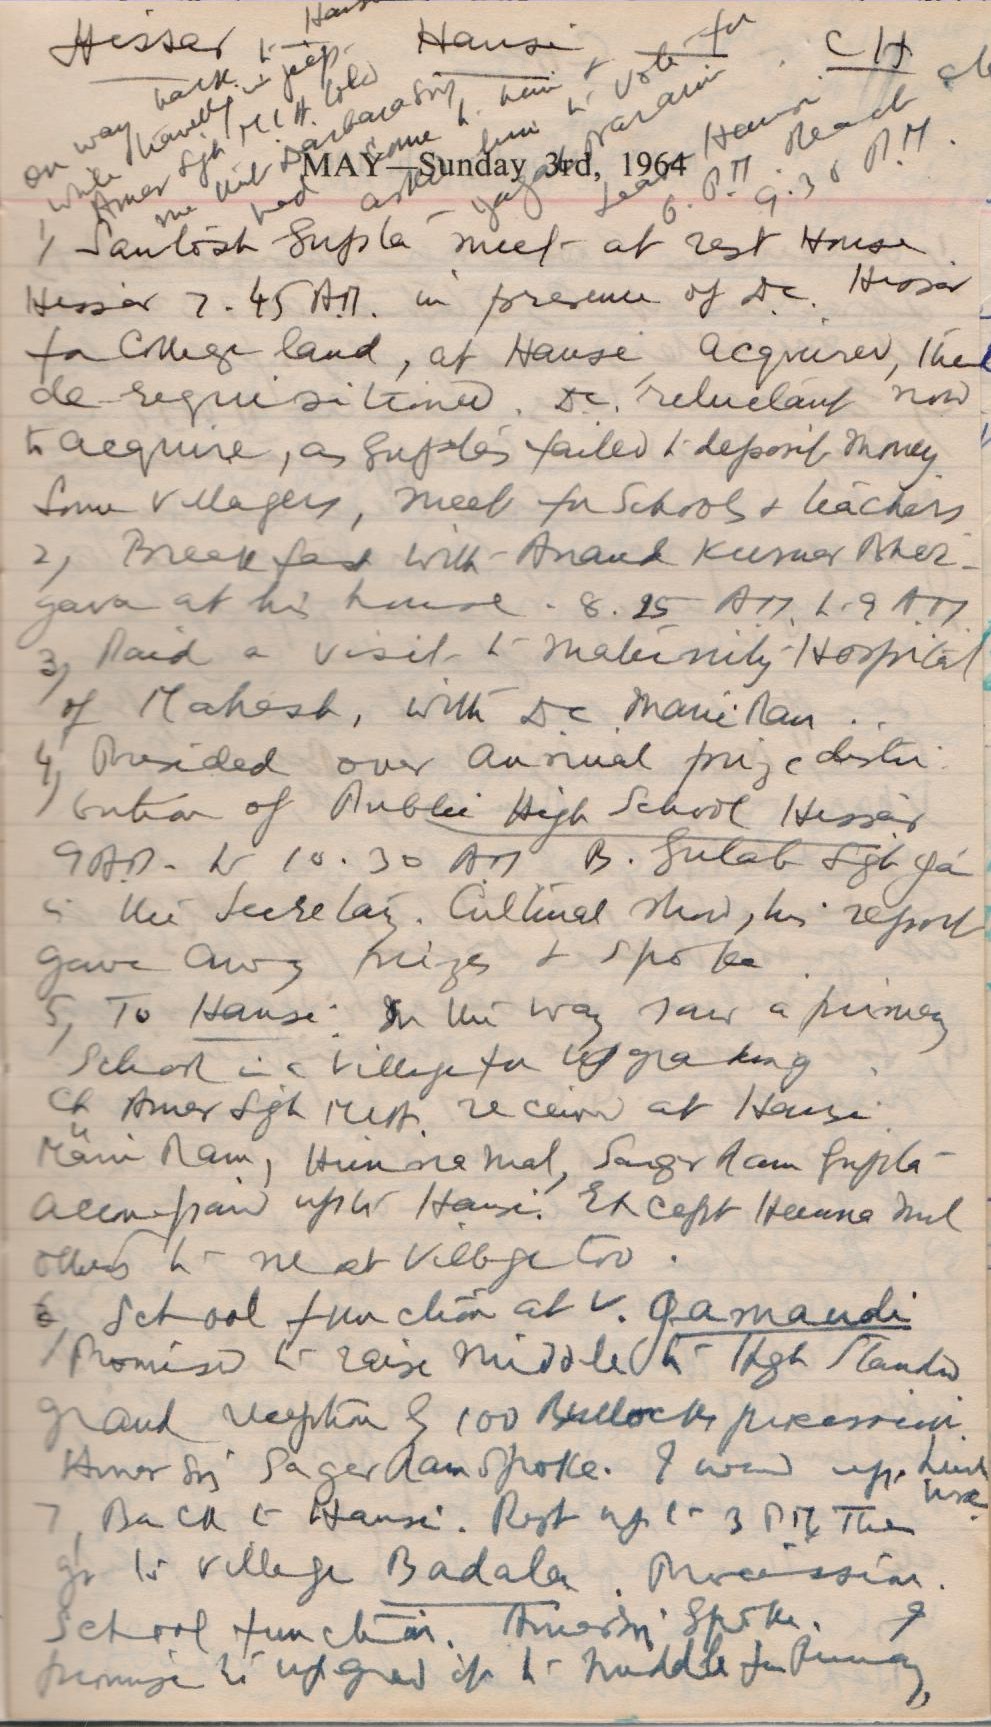 Hissar Hansi CH
on way back to Hansi
while travelling in jeep
Amar Sgh MLA told
me that Darbara Singh
had come to him &
asked him to vote for
Jagat Narain
Leave Hansi
6. P.M. Reach
9.30 P.M.
MAY—Sunday 3rd, 1964
1, Santosh Gupta meet at rest House
Hissar 7.45 A.M. in presence of D.C. Hissar
for College land, at Hansi acquired, then
de-requisitioned. D.C. reluctant now
to acquire, as Guptas failed to deposit money
Some villagers, meet for Schools & teachers
2, Breakfast with Anand Kumar Bhar-
gava at his house. 8.25 A.M. to 9 A.M.
3, Paid a visit to Maternity Hospital
of Mahesh, with D.C. Mani Ram ..
4, Presided over annual prize distri
bution of Public High School Hissar
9 A.M. to 10.30 AM B. Gulab Sgh
is the Secretary. Cultural show, his report
gave away prizes & spoke.
5, To Hansi. On the way saw a primary
School in a village for upgrading.
Ch Amar Sgh MLA. receive at Hansi.
Mani Ram, Sager Ram Gupta
accompanied upto Hansi. Except
others to next village too.
6, School function at V. Gamandi
Promised to raise Middle to High Standard
grand reception by 100 Bullocks procession.
Amar Sgh Sager Ram Spoke. I wound up. Lunch
7, Back to Hansi. Rest upto 3 P.M. Then
go to village Badala. Procession.
School function. Amar Sgh Spoke. I
promise to upgrade it to middle from Primary,